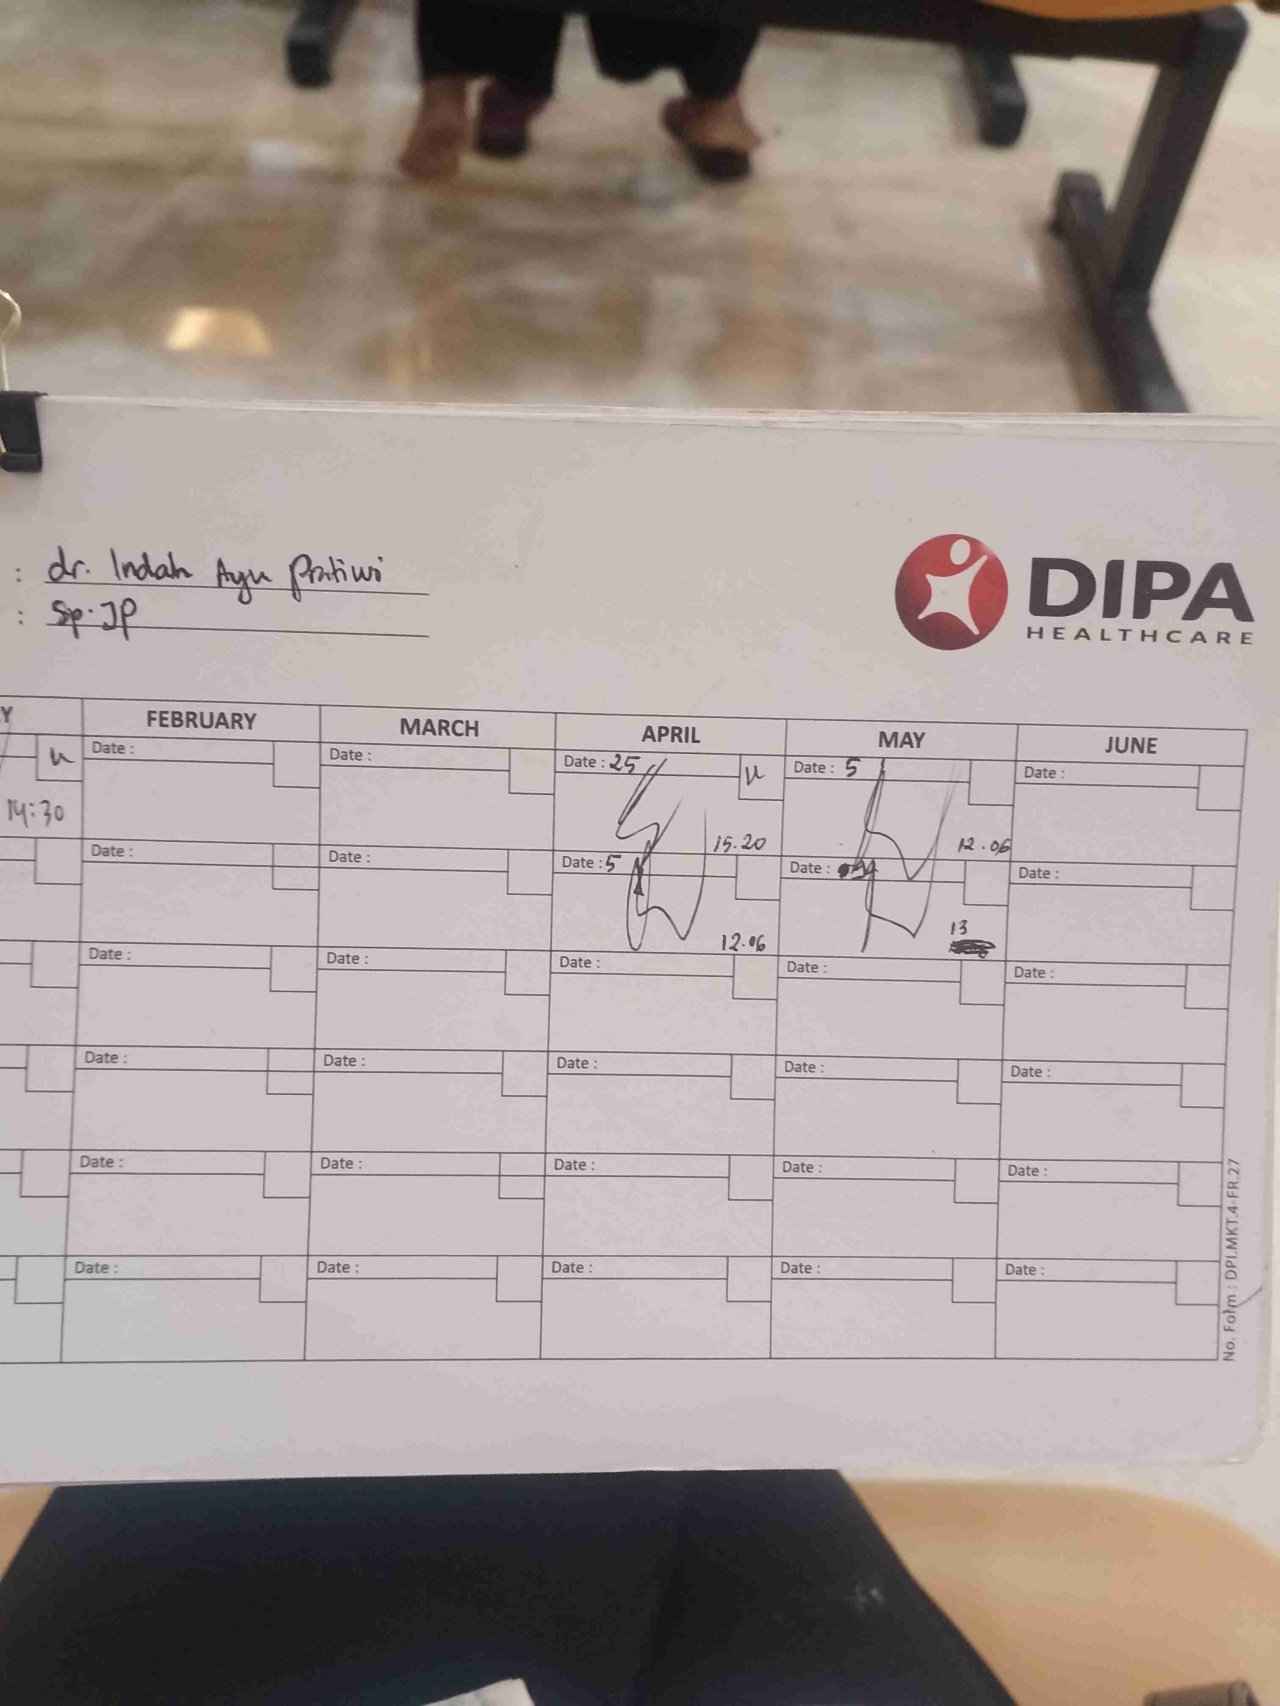 : dr. Indah Ayu Pratiwi
: Sp.JP
DIPA
HEALTHCARE
Y FEBRUARY MARCH APRIL MAY JUNE
u Date : Date : Date : 25 u Date : 5 Date :
14:30 15.20 12.06
Date : Date : Date : 5 Date : Date :
12.06 13
Date : Date : Date : Date : Date :
Date : Date : Date : Date : Date :
Date : Date : Date : Date : Date :
Date : Date : Date : Date : Date :
No. Form : DPI.MKT.4-FR.27